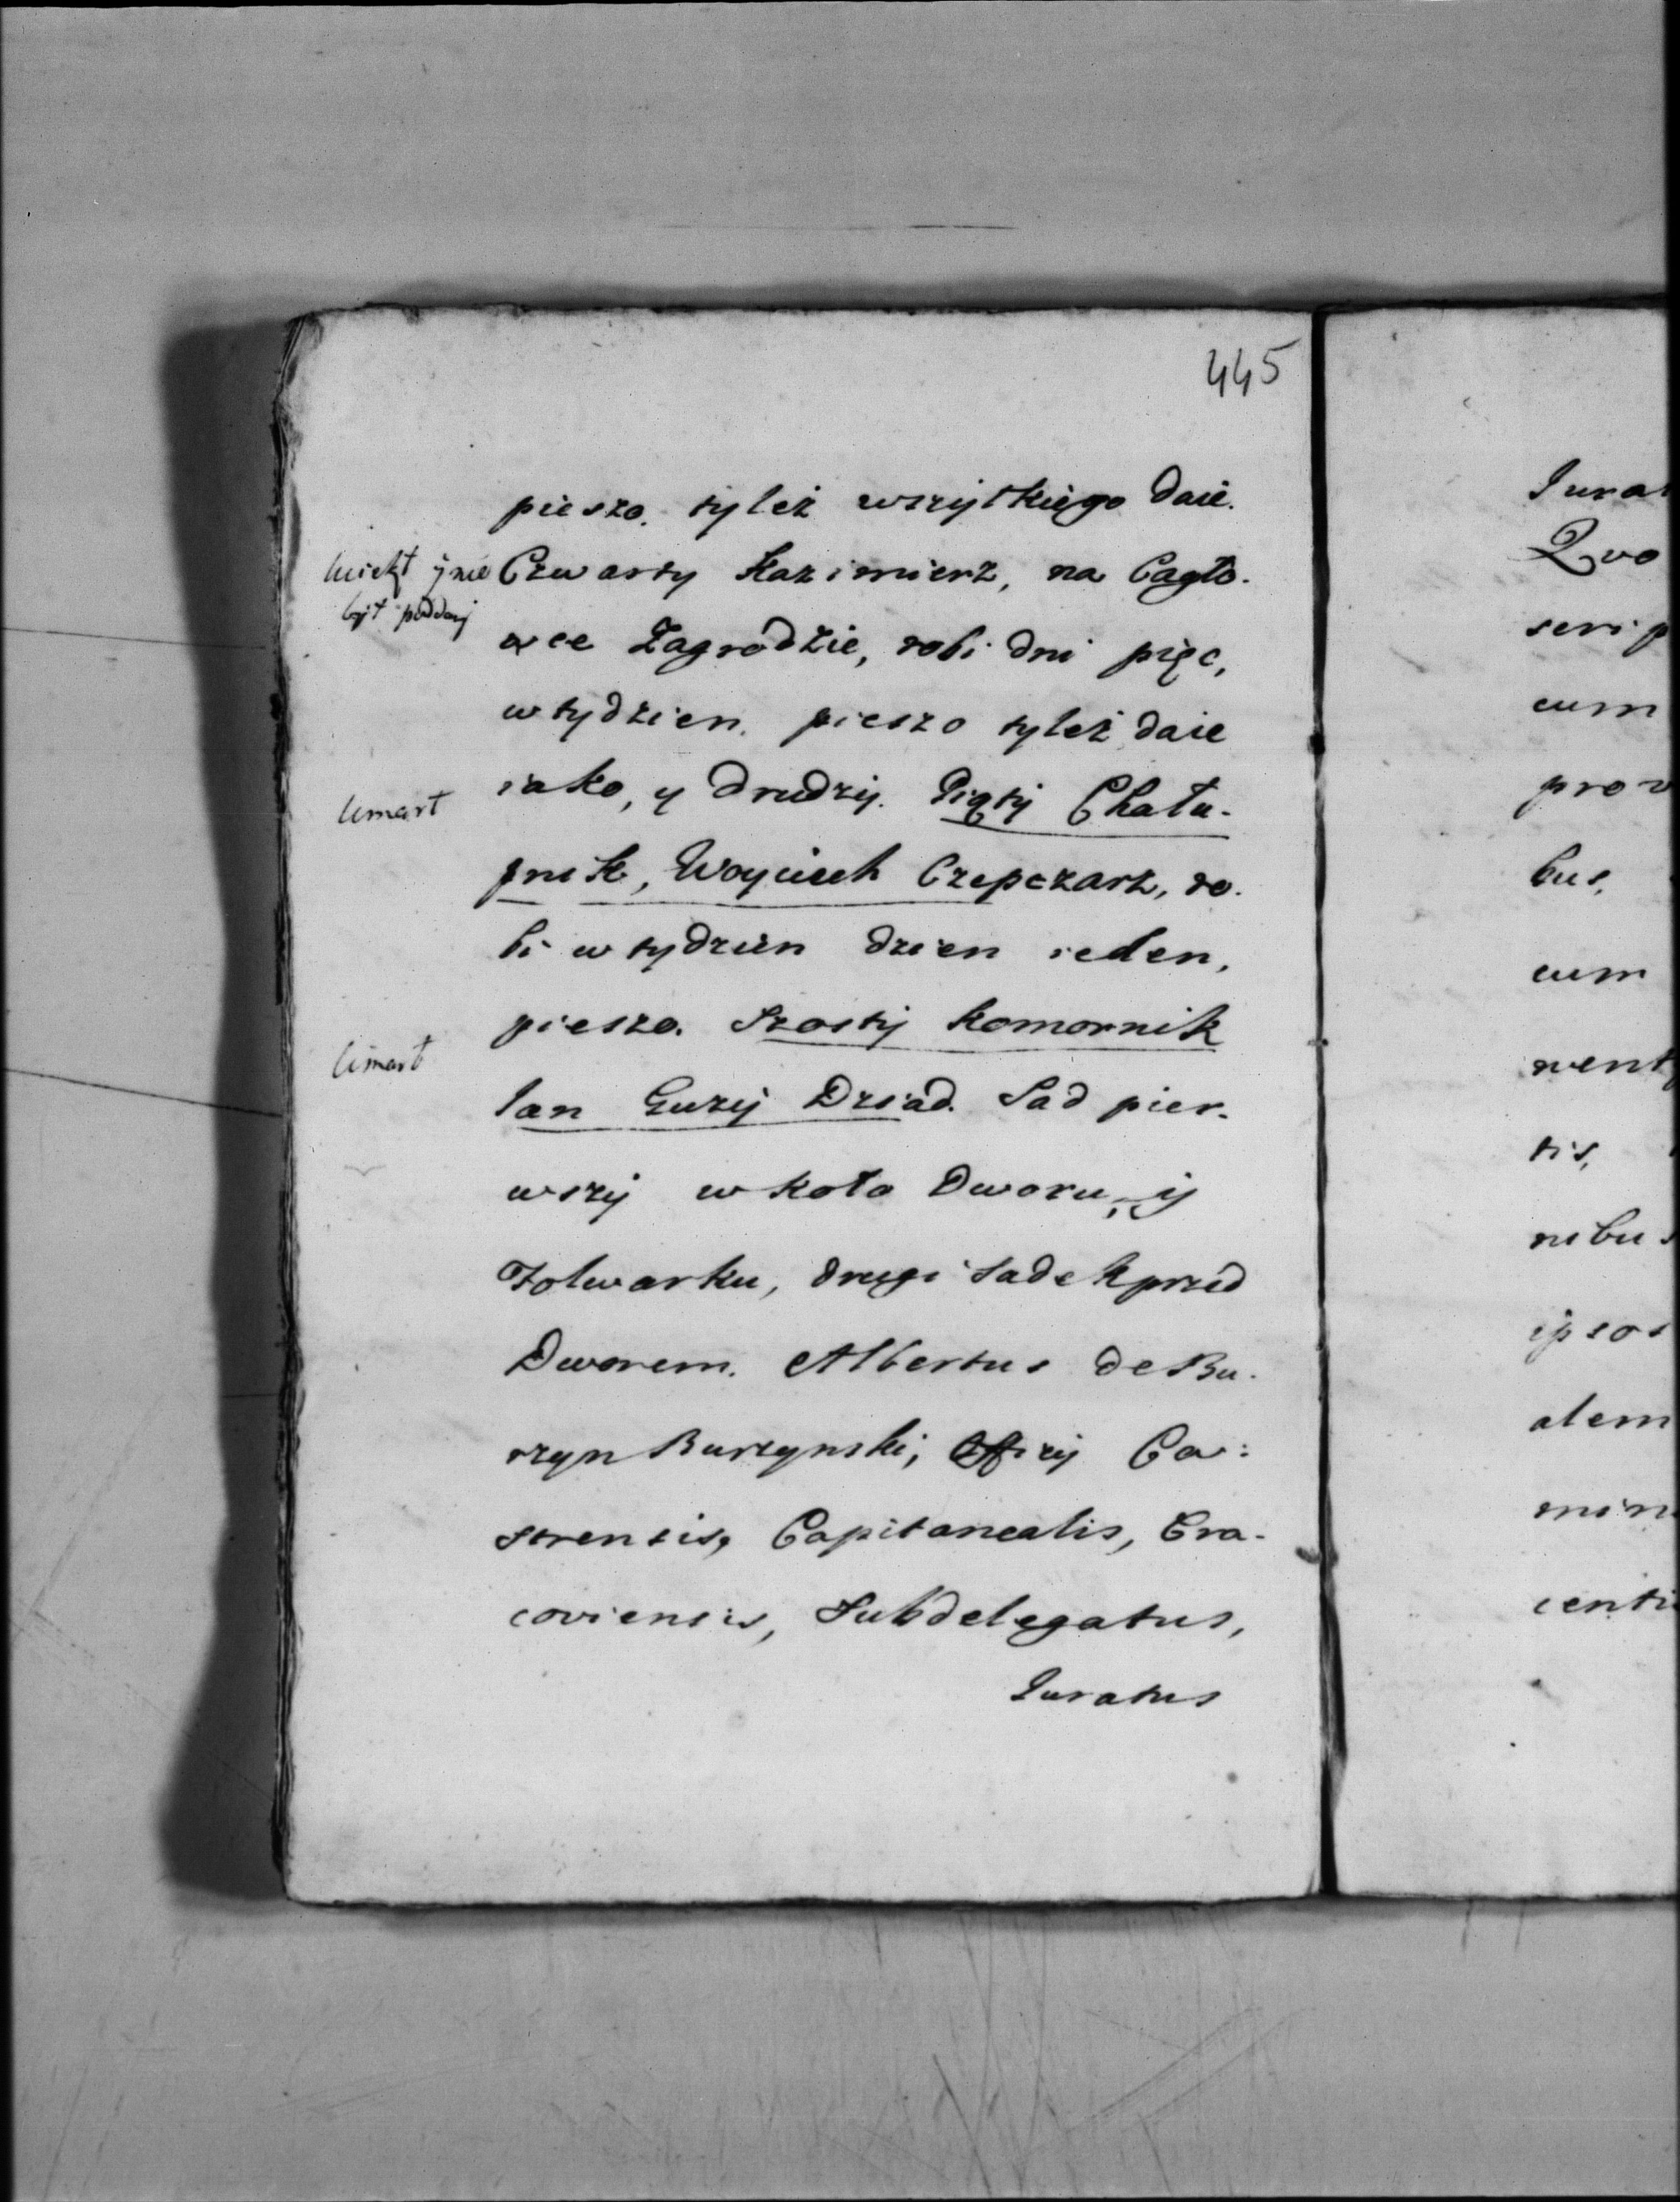 445
pieszo. tyleż wszytkiego daie.
uciekł ÿ nie
był poddanÿ
Czwarty Kazimierz, na Cagło-
wce Zagrodzie, robi dni pięc,
w tydzien. pieszo tyleż daie
umarł
iako, y drudzÿ. Piątÿ Chału-
pnik, Woyciech Czepczarz, ro-
bi w tydzien dzien ieden,
pieszo. Szostÿ Komornik
umarł
Ian Guzÿ Dziad. Sad pier-
wszÿ w koło Dworu, ÿ
Folwarku, drugi Sadek przed
Dworem. Albertus de Bu-
rzyn Burzynski, Offizÿ Ca-
strensis, Capitanealis, Cra-
coviensis, Subdelegatus,
Iuratus
Iura
Quo
scrip
cum
prov
bus,
cum
nent
tis,
nibus
ipsos
alem
min
centi